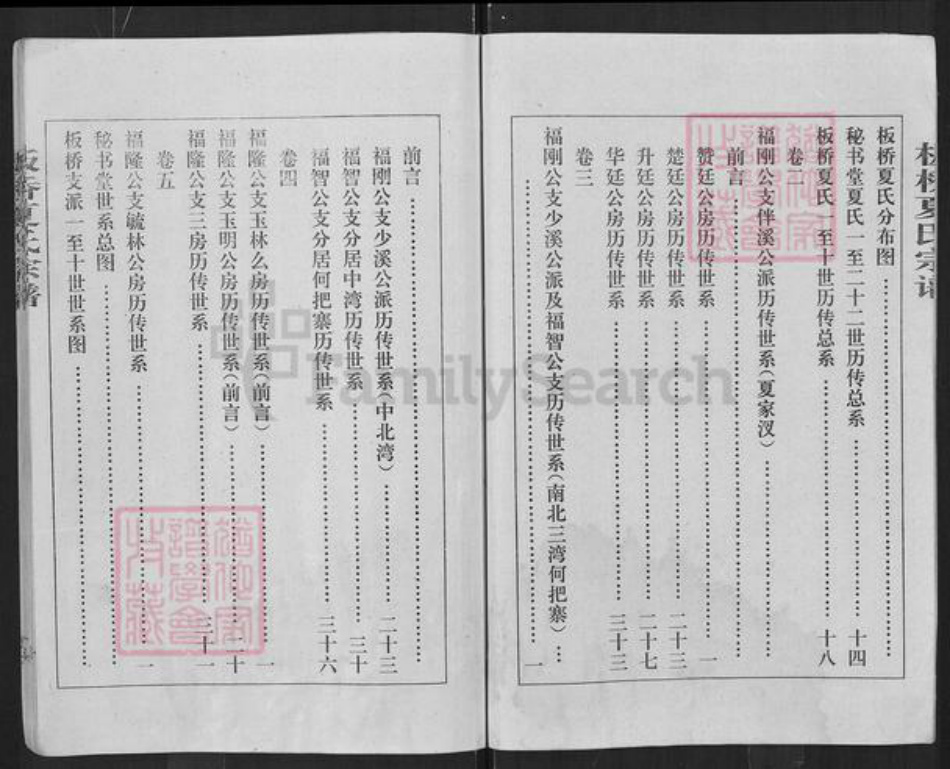 板桥夏氏宗谱
板桥夏氏分布图……
秘书堂夏氏一至二十二世历传总系……十四
板桥夏氏一至十世历传总系……十八
卷二
福刚公支伴溪公派历传世系(夏家汊)……
前言……
赞廷公房历传世系……一
楚廷公房历传世系……二十三
升廷公房历传世系……二十七
华廷公房历传世系……三十三
卷三
福刚公支少溪公派及福智公支历传世系(南北三湾何把寨)……
……一
前言……
福刚公支少溪公派历传世系(中北湾)……二十三
福智公支分居中湾历传世系……三十
福智公支分居何把寨历传世系……三十六
卷四
福隆公支玉林么房历传世系(前言)……一
福隆公支玉明公房历传世系(前言)……二十
福隆公支三房历传世系……三十一
卷五
福隆公支毓林公房历传世系……一
秘书堂世系总图……
板桥支派一至十世世系图……
板桥夏氏宗谱
FamilySearch